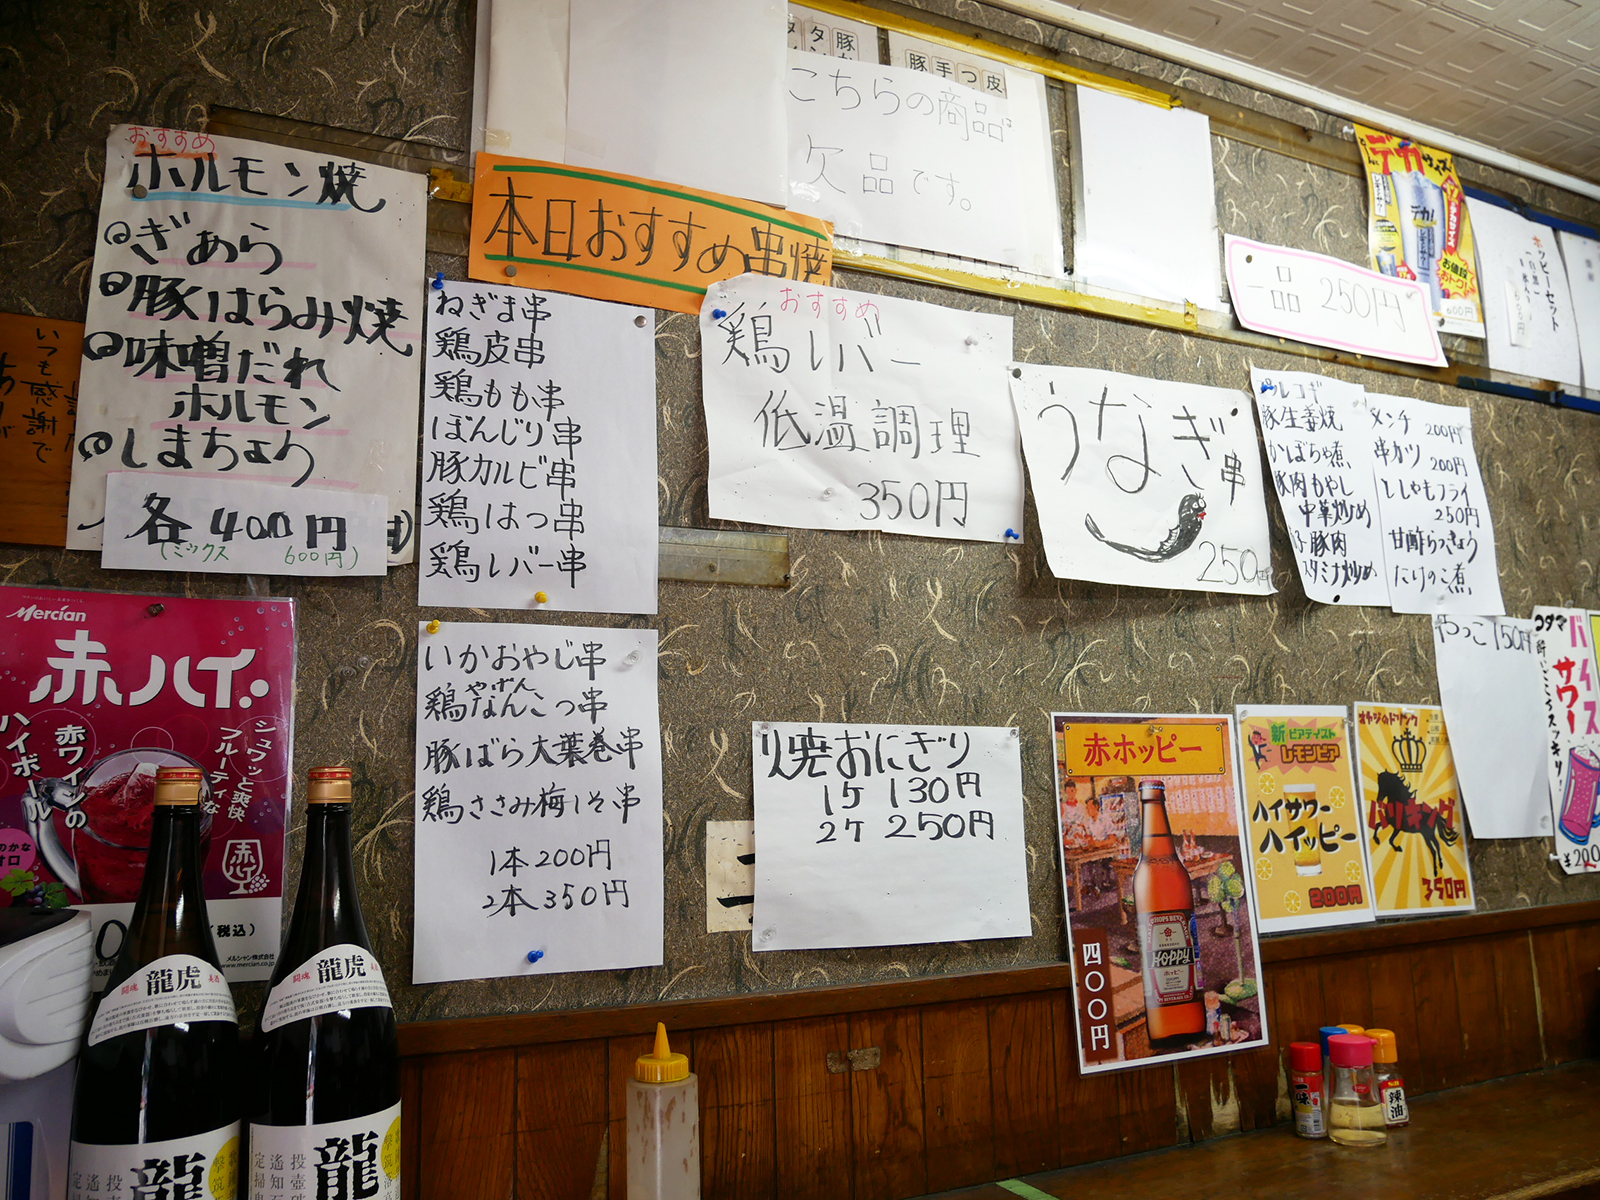 おすすめ
ホルモン焼
ぎあら
豚はらみ焼
味噌だれ
ホルモン
しまちょう
各400円
(ミックス 600円)
いつも感謝で
本日おすすめ串焼
ねぎま串
鶏皮串
鶏もも串
ぼんじり串
豚カルビ串
鶏はつ串
鶏レバー串
いかおやじ串
やげん
鶏なんこつ串
豚ばら大葉巻串
鶏ささみ梅しそ串
1本200円
2本350円
豚手つ皮
こちらの商品
欠品です。
おすすめ
鶏レバー
低温調理
350円
うなぎ串
250円
一品 250円
プルコギ
豚生姜焼
かぼちゃ煮
豚肉もやし
中華炒め
豚肉
スタミナ炒め
メンチ 200円
串カツ 200円
ししゃもフライ
250円
甘酢らっきょう
たけのこ煮
やっこ 150円
焼おにぎり
1ケ 130円
2ケ 250円
デカ
デカ!
お値段
おトク!
600円
ホッピーセット
コダマ
バイスサワー
酔いごこちスッキリ!
¥200
赤ホッピー
HOPPY
ホッピー
四〇〇円
新 ビアテイスト
レモンビア
ハイサワー
ハイッピー
200円
オヤジのドリンク
バリキング
350円
Mercian
赤ハイ。
シュワッと爽快
フルーティな
赤ワインの
ハイボール
赤ハイ
(税込)
メルシャン株式会社
www.mercian.co.jp
闘魂 龍虎 美酒
闘魂 龍虎
龍
龍
一味
辣油